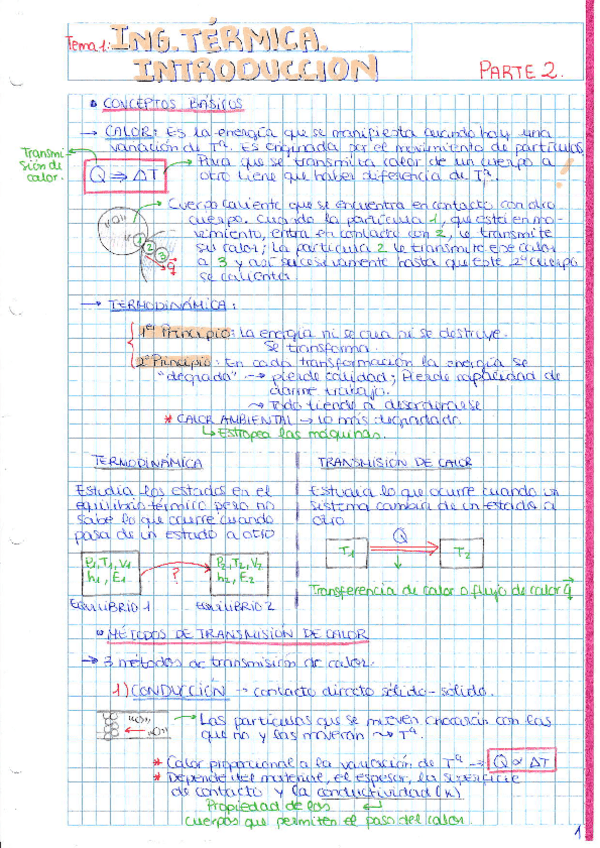 Tema 1: ING. TÉRMICA.
INTRODUCCION
PARTE 2.
• CONCEPTOS BÁSICOS
→ CALOR: Es la energía que se manifiesta cuando hay una
variación de Tª. Es originada por el movimiento de partículas
Transmi-
sión de
calor.
Q ⇒ ΔT
→ Para que se transmita calor de un cuerpo a
otro tiene que haber diferencia de Tª.
!
→ Cuerpo caliente que se encuentra en contacto con otro
cuerpo. Cuando la partícula 1, que está en mo-
vimiento, entra en contacto con 2, le transmite
su calor; la partícula 2 le transmite ese calor
a 3 y así sucesivamente hasta que este 2º cuerpo
se calienta.
"O"
1
2
3
q
→ TERMODINÁMICA:
1er Principio: La energía ni se crea ni se destruye.
Se transforma.
2º Principio: En cada transformación la energía se
"degrada" → pierde calidad; Pierde capacidad de
darme trabajo.
↝ Todo tiende a desordenarse
* CALOR AMBIENTAL → lo más degradado.
↳ Estropea las máquinas.
TERMODINÁMICA
Estudia los estados en el
equilibrio térmico pero no
sabe lo que ocurre cuando
pasa de un estado a otro
P1, T1, V1
h1, E1
?
P2, T2, V2
h2, E2
EQUILIBRIO 1
EQUILIBRIO 2
TRANSMISIÓN DE CALOR
Estudia lo que ocurre cuando un
sistema cambia de un estado a
otro
T1
Q
T2
Transferencia de calor o flujo de calor q
• MÉTODOS DE TRANSMISIÓN DE CALOR
→ 3 métodos de transmisión de calor.
1) CONDUCCIÓN → contacto directo sólido-sólido.
"O"
"O"
→ Las partículas que se mueven chocarán con las
que no y las moverán ↝ Tª.
* Calor proporcional a la variación de Tª → Q ∝ ΔT
* Depende del material, el espesor, la superficie
de contacto y la conductividad (K)
Propiedad de los
cuerpos que permiten el paso del calor.
1